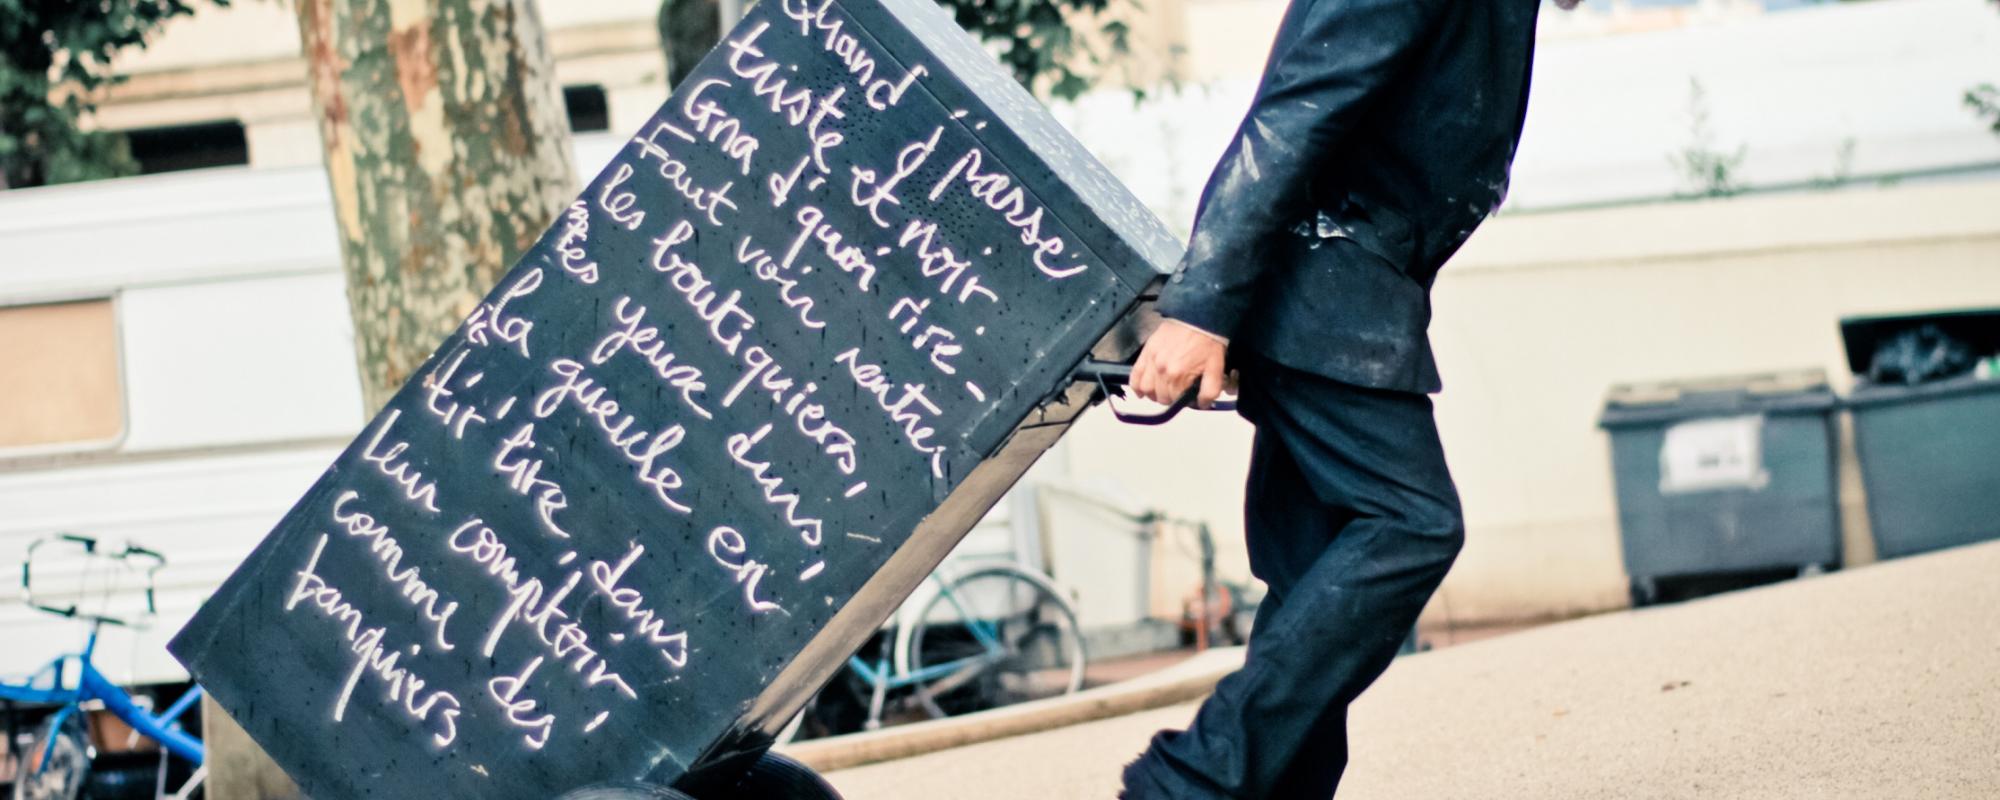 Quand j'passe
triste et noir
Gna d'quoi rire -
Faut voir rentrer
les boutiquiers,
les yeux durs,
la gueule en
tir'lire, dans
leur comptoir
comme des
banquiers